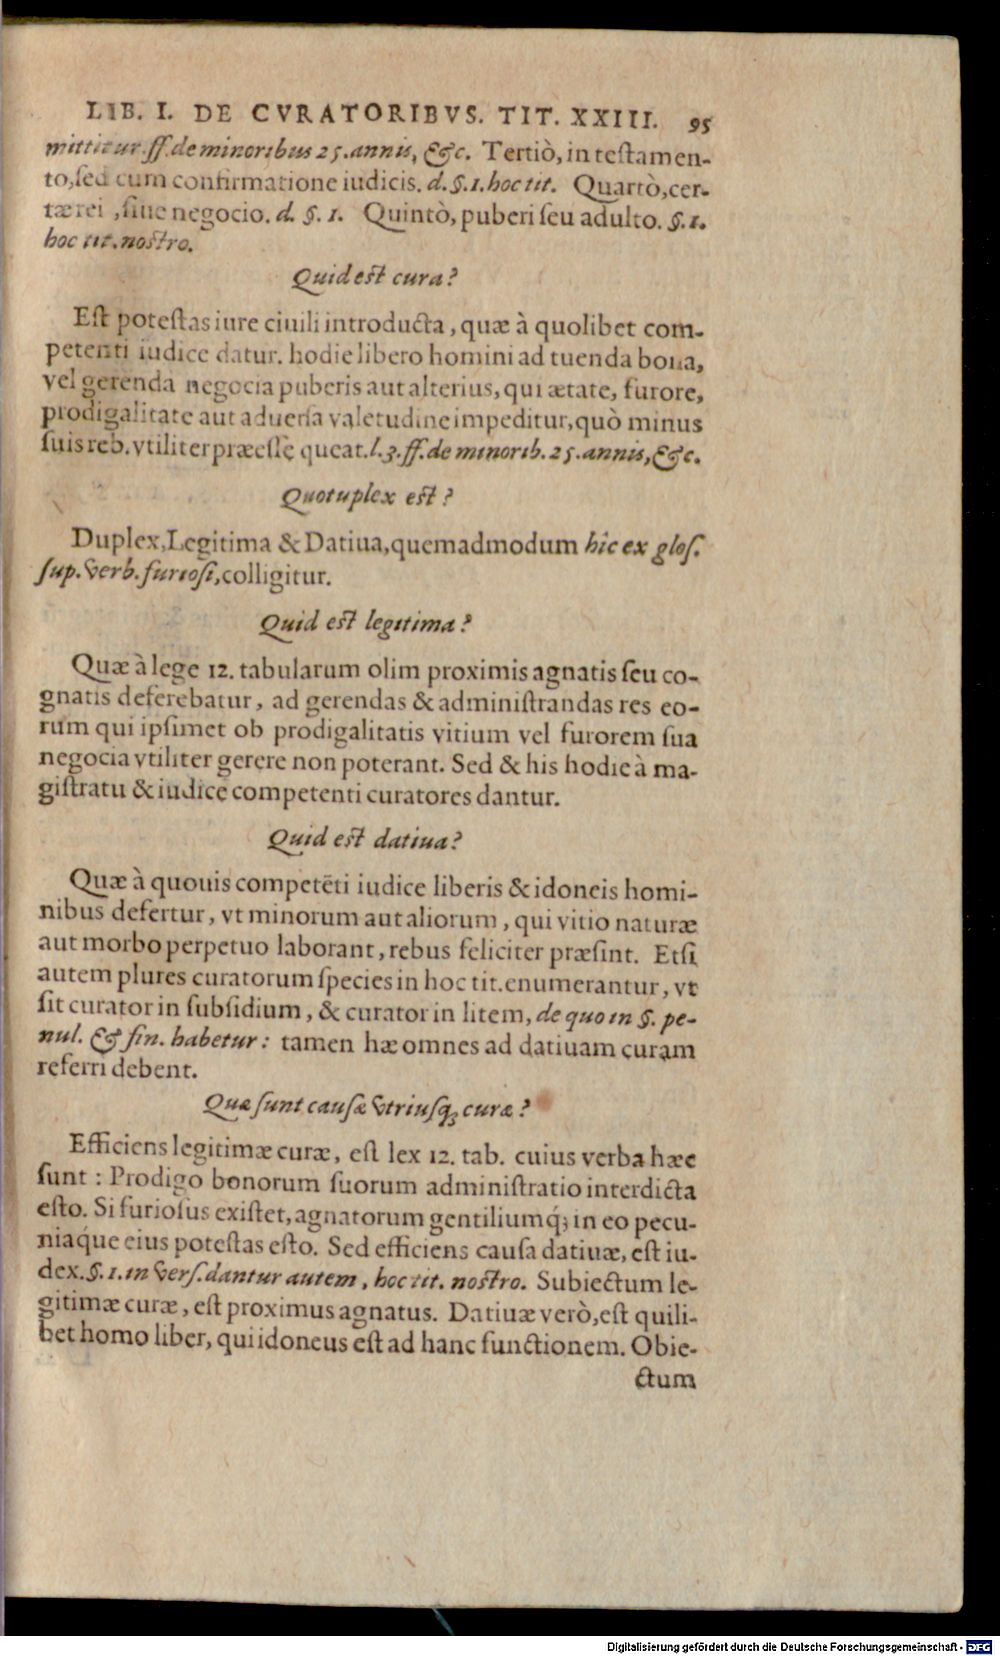 LIB. I. DE CVRATORIBVS. TIT. XXIII. 95
mittitur. ff. de minoribus 25. annis, &c. Tertiò, in testamen-
to, sed cum confirmatione iudicis. d. §. 1. hoc tit. Quartò, cer-
tæ rei, siue negocio. d. §. 1. Quintò, puberi seu adulto. §. 1.
hoc tit. nostro.
Quid est cura?
Est potestas iure ciuili introducta, quæ à quolibet com-
petenti iudice datur. hodie libero homini ad tuenda bona,
vel gerenda negocia puberis aut alterius, qui ætate, furore,
prodigalitate aut aduersa valetudine impeditur, quò minus
suis reb. vtiliter præesse queat. l. 3. ff. de minorib. 25. annis, &c.
Quotuplex est?
Duplex, Legitima & Datiua, quemadmodum hic ex glos.
sup. verb. furiosi, colligitur.
Quid est legitima?
Quæ à lege 12. tabularum olim proximis agnatis seu co-
gnatis deferebatur, ad gerendas & administrandas res eo-
rum qui ipsimet ob prodigalitatis vitium vel furorem sua
negocia vtiliter gerere non poterant. Sed & his hodie à ma-
gistratu & iudice competenti curatores dantur.
Quid est datiua?
Quæ à quouis competēti iudice liberis & idoneis homi-
nibus defertur, vt minorum aut aliorum, qui vitio naturæ
aut morbo perpetuo laborant, rebus feliciter præsint. Etsi
autem plures curatorum species in hoc tit. enumerantur, vt
sit curator in subsidium, & curator in litem, de quo in §. pe-
nul. & fin. habetur: tamen hæ omnes ad datiuam curam
referri debent.
Quæ sunt causæ vtriusq; curæ?
Efficiens legitimæ curæ, est lex 12. tab. cuius verba hæc
sunt: Prodigo bonorum suorum administratio interdicta
esto. Si furiosus existet, agnatorum gentiliumq́; in eo pecu-
niáque eius potestas esto. Sed efficiens causa datiuæ, est iu-
dex. §. 1. in vers. dantur autem, hoc tit. nostro. Subiectum le-
gitimæ curæ, est proximus agnatus. Datiuæ verò, est quili-
bet homo liber, qui idoneus est ad hanc functionem. Obie-
ctum
Digitalisierung gefördert durch die Deutsche Forschungsgemeinschaft - DFG